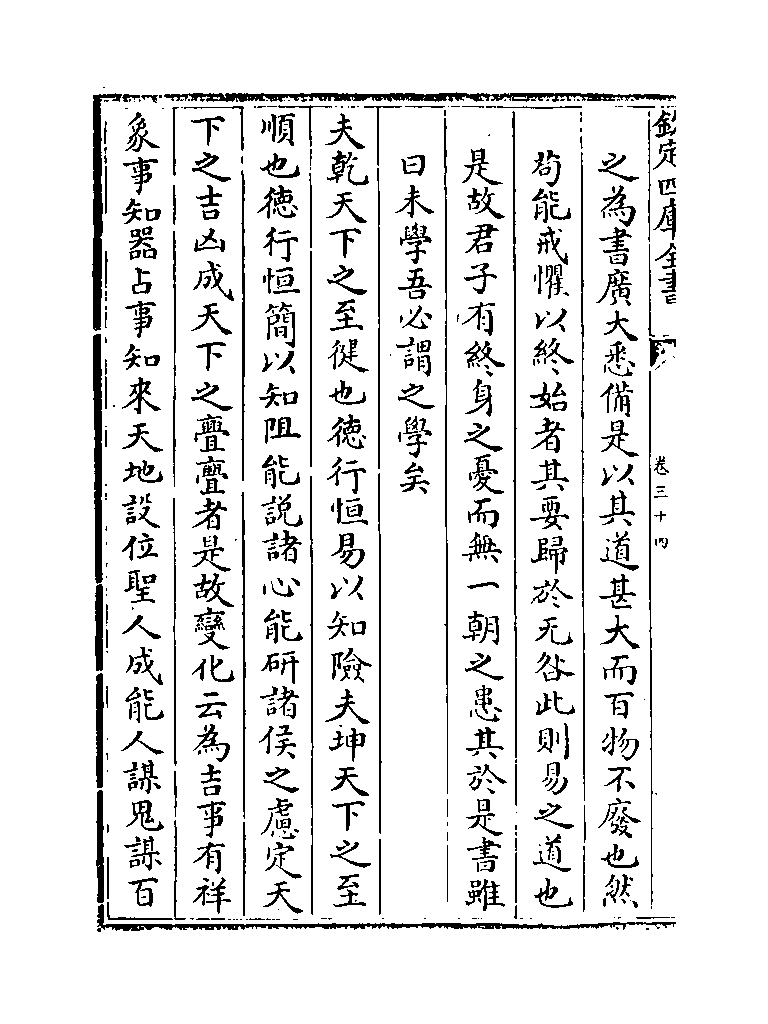 欽定四庫全書
卷三十四
之為書廣大悉備是以其道甚大而百物不廢也然
苟能戒懼以終始者其要歸於无咎此則易之道也
是故君子有終身之憂而無一朝之患其於是書雖
曰未學吾必謂之學矣
夫乾天下之至健也德行恒易以知險夫坤天下之至
順也德行恒簡以知阻能説諸心能研諸侯之慮定天
下之吉凶成天下之亹亹者是故變化云為吉事有祥
象事知器占事知來天地設位聖人成能人謀鬼謀百